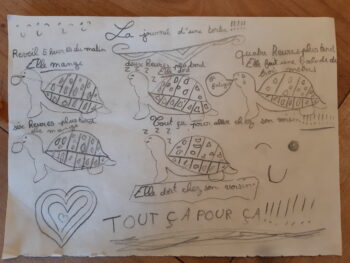 La journée d'une tortue !!!!!
Reveil 5 heures du matin
Elle mange
deux heures plus tard
Elle dort
Z Z Z Z
quatre heures plus tard
Elle fait une balade de
trois metres
six heures plus tard
elle mange
Tout ça pour aller chez son voisin !!!!!!!
Z Z Z
Elle dort chez son voisin
TOUT ÇA POUR ÇA!!!!!!!